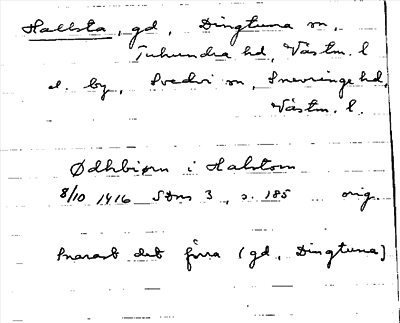 Hallsta, gd, Dingtuna sn,
Tuhundra hd, Västm. l
el. by, Svedvi sn, Snevringe hd,
Västm. l.
Ødhbiørn i Halstom
8/10 1416 SDns 3, s. 185 orig.
Snarast det förra (gd, Dingtuna)